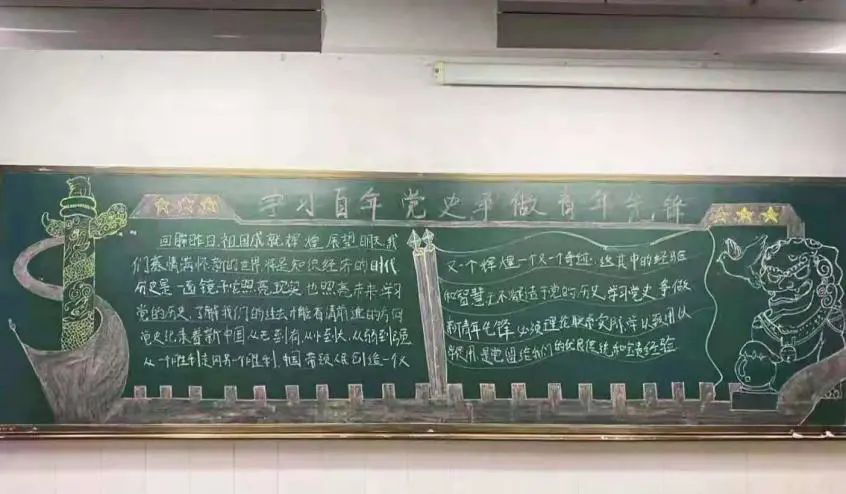 学习百年党史争做青年先锋
回眸昨日,祖国成就辉煌 展望明天,我
们豪情满怀 新的世界 将是知识经济的时代
历史是一面镜子它照亮现实 也照亮未来 学习
党的历史,了解我们的过去才能看清前进的方向
党史记录着新中国从无到有,从小到大,从弱到强
从一个胜利走向另一个胜利 中国带领人民创造一个
又一个辉煌一个又一个奇迹 这其中的经验
和智慧正不断 于党的历史 学习党史 争做
新青年先锋 必须理论联系实际,学以致用以
是党留给我们的优良传统和宝贵经验